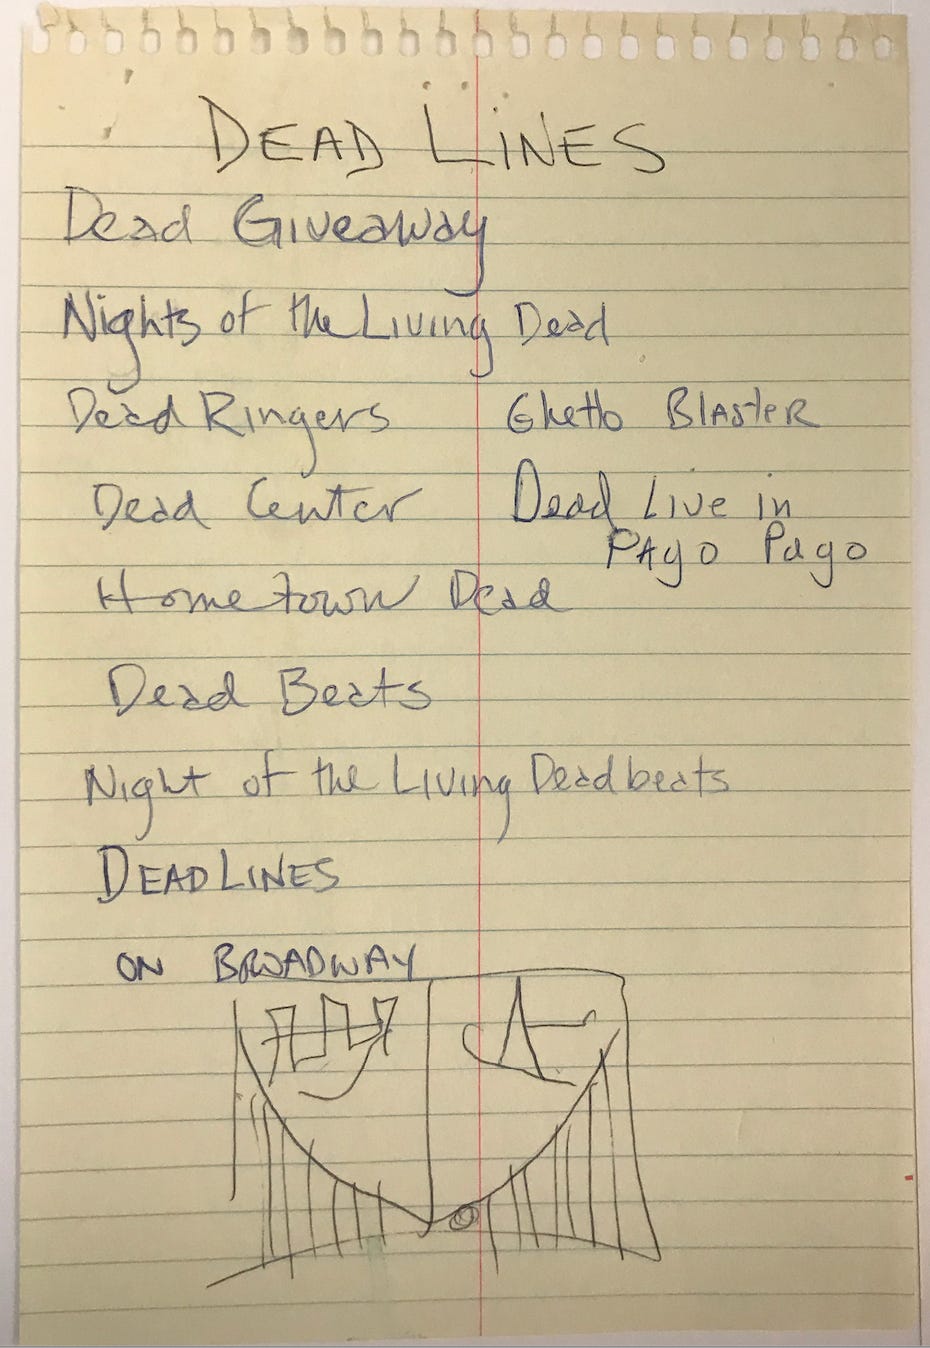 DEAD LINES
Dead Giveaway
Nights of the Living Dead
Dead Ringers
Ghetto Blaster
Dead Center
Dead Live in
Pago Pago
Hometown Dead
Dead Beats
Night of the Living Deadbeats
DEAD LINES
ON BROADWAY